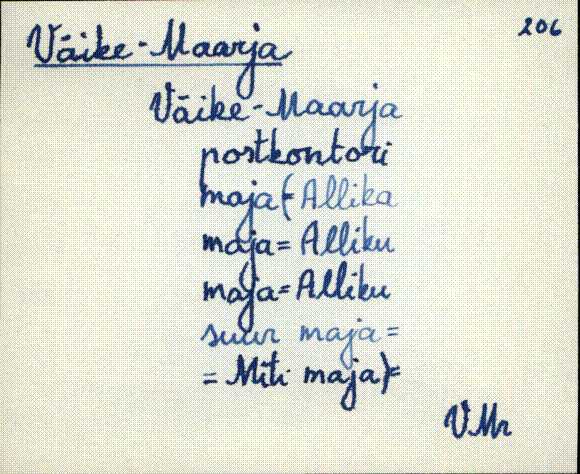 206
Väike-Maarja
Väike-Maarja
postkontori
maja (= Allika
maja = Alliku
maja = Alliku
suur maja =
= Miti maja) =
VMr